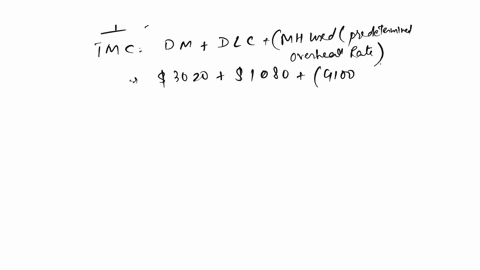 1
TMC: DM + DLC + (MH used (predetermined
overhead Rate)
$3020 + $1080 + (9100